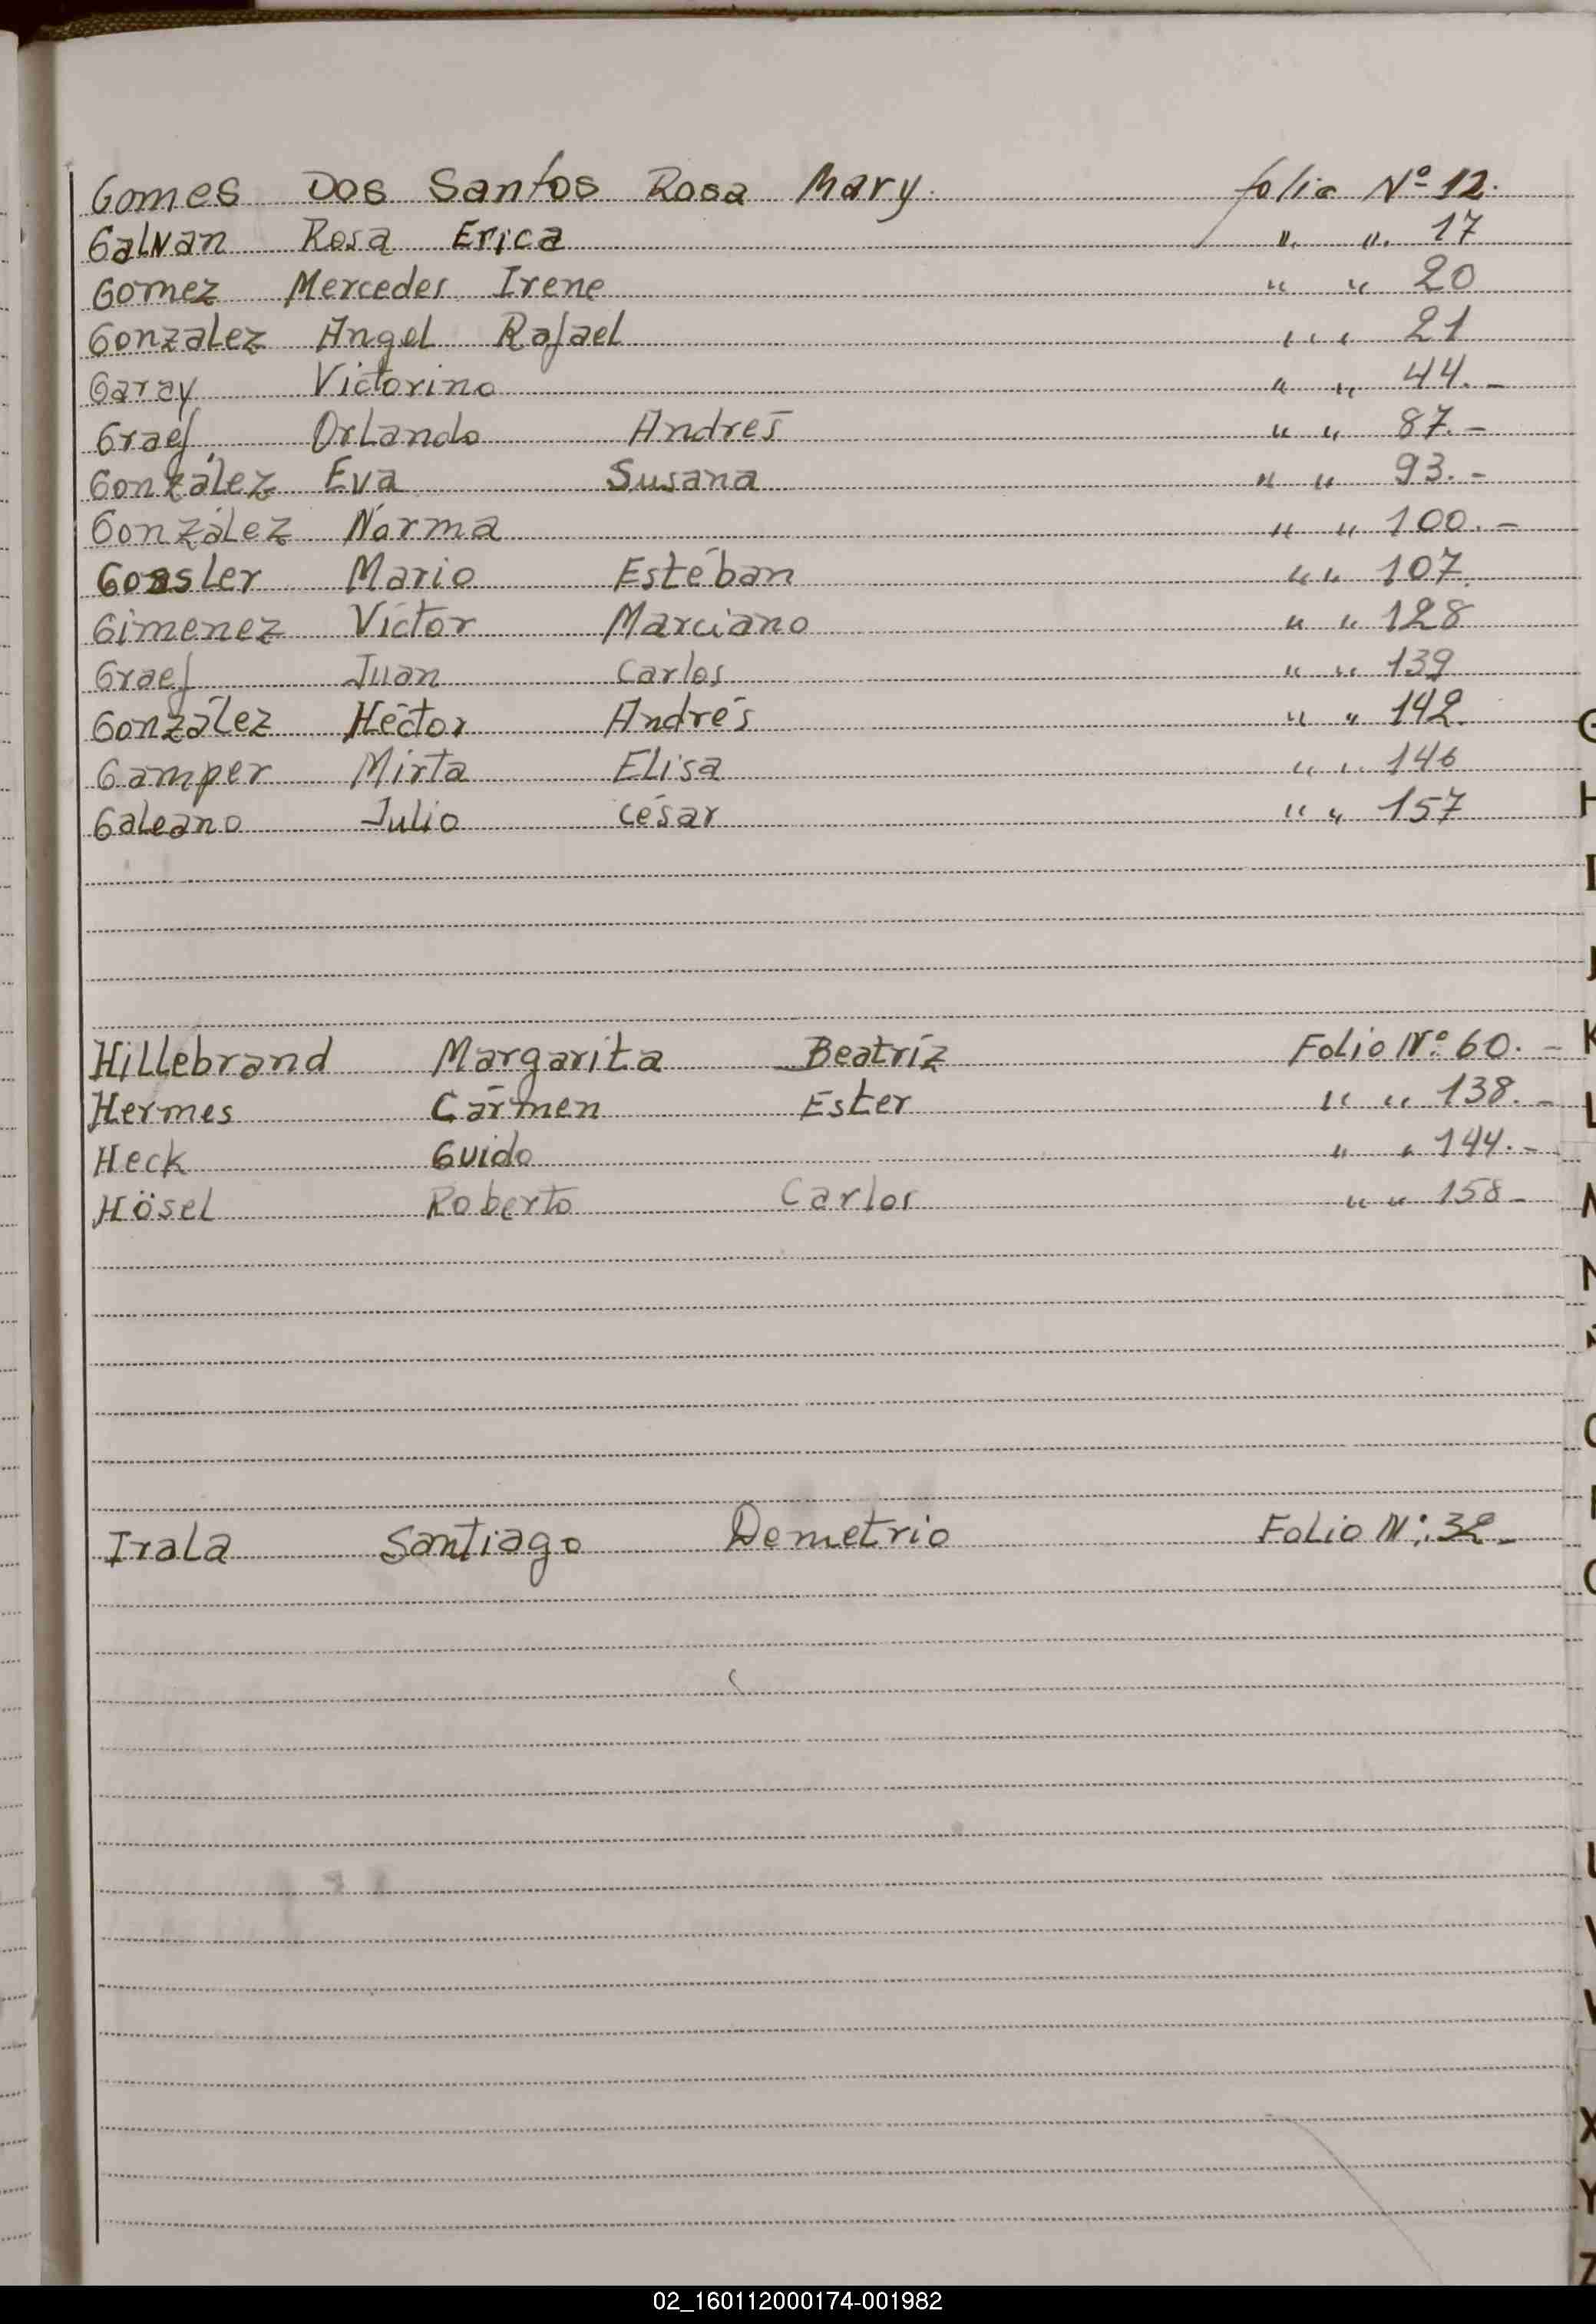 Gomes Dos Santos Rosa Mary. folio Nº 12.
Galvan Rosa Erica " " 17
Gomez Mercedes Irene " " 20
Gonzalez Angel Rafael " " 21
Garay Victorino " " 44.-
Graef Orlando Andrés " " 87.-
González Eva Susana " " 93.-
González Norma " " 100.-
Gossler Mario Estéban " " 107.
Gimenez Víctor Marciano " " 128
Graef Juan Carlos " " 139
González Héctor Andrés " " 142.
Gamper Mirta Elisa " " 146
Galeano Julio César " " 157
Hillebrand Margarita Beatríz Folio Nº 60.-
Hermes Cármen Ester " " 138.-
Heck Guido " " 144.-
Hösel Roberto Carlos " " 158-
Irala Santiago Demetrio Folio Nº: 32-
H
K
L
U
X
Y
Z
02_160112000174-001982